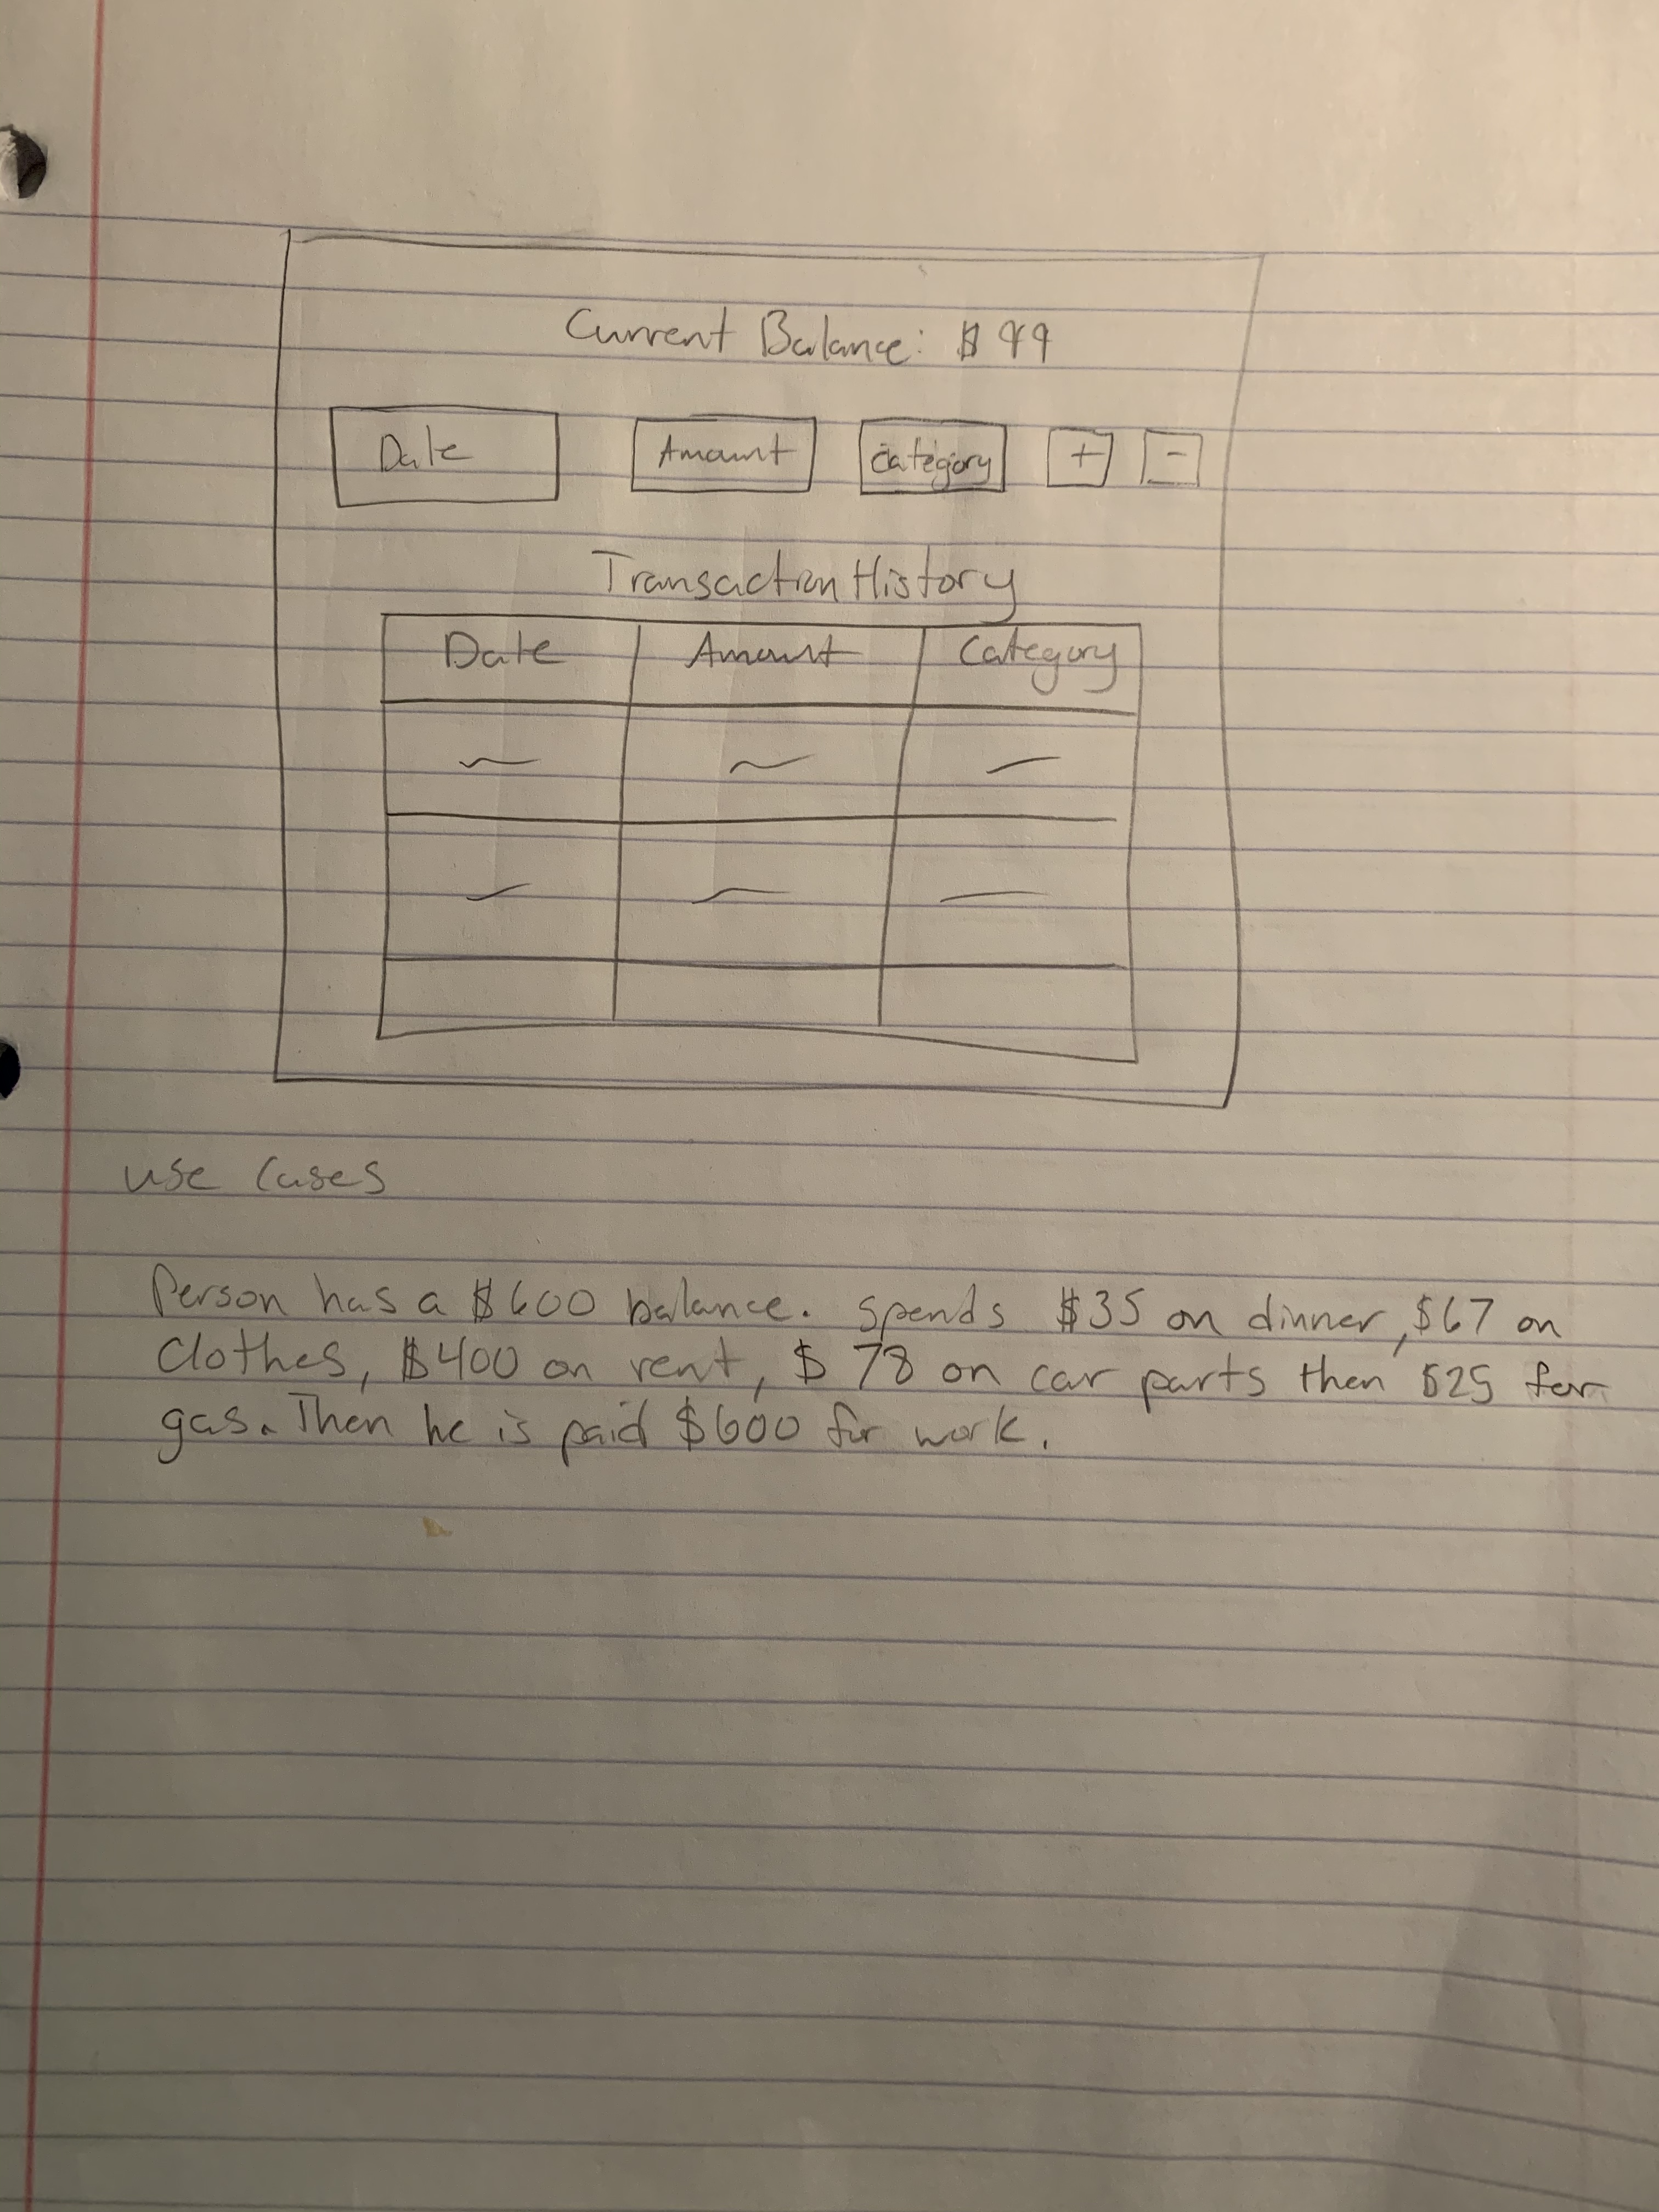 Current Balance: $99
Date Amount Category + -
Transaction History
Date Amount Category
use cases
Person has a $600 balance. Spends $35 on dinner, $67 on
Clothes, $400 on rent, $78 on car parts then $25 for
gas. Then he is paid $600 for work.